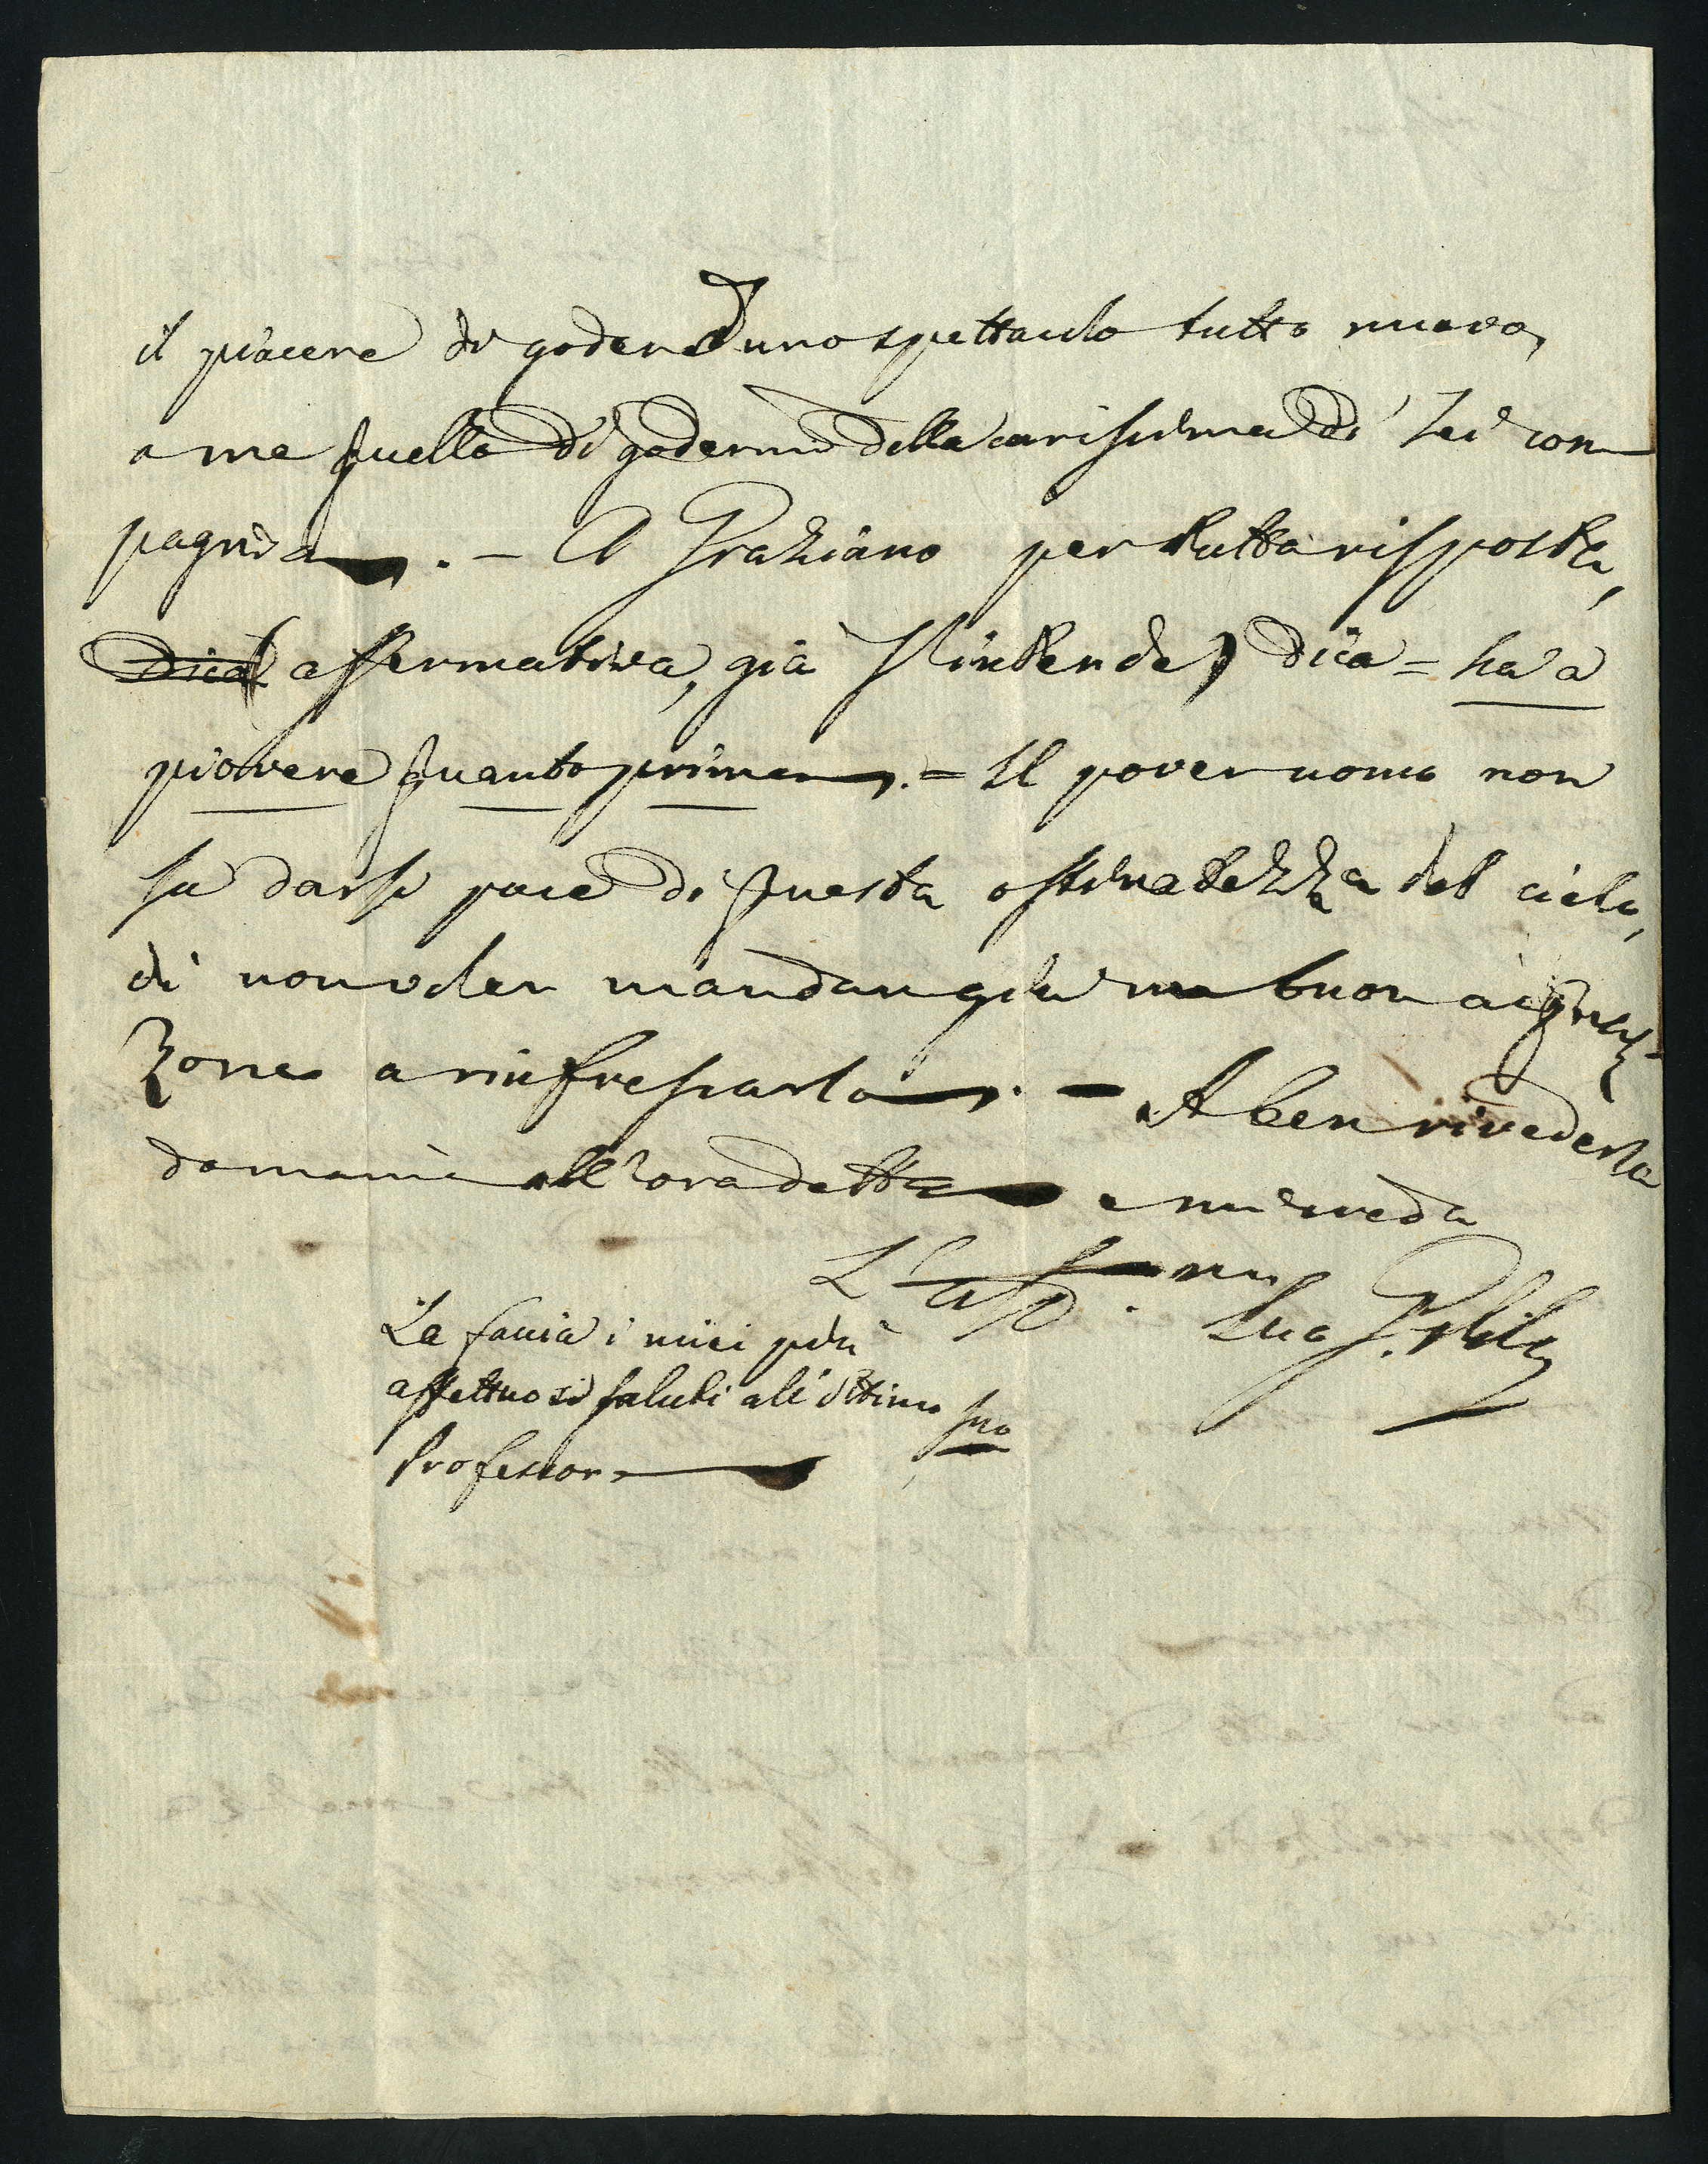 il piacere di godere d'uno spettacolo tutto nuovo,
a me quello di godermi della carissima di Lei com
pagnia. – A Graziano per tutta risposta,
Dica (affermativa, già s'intende) dica = ha a
piovere quanto prima. = Il pover uomo non
sa darsi pace di questa ostinatezza del cielo,
di non voler mandargli un buon acquaz-
zone a rinfrescarlo. – A ben rivederla
domani all'ora detta e mi creda
L'
Le faccia i miei più
affettuosi saluti all'ottimo suo
Professore